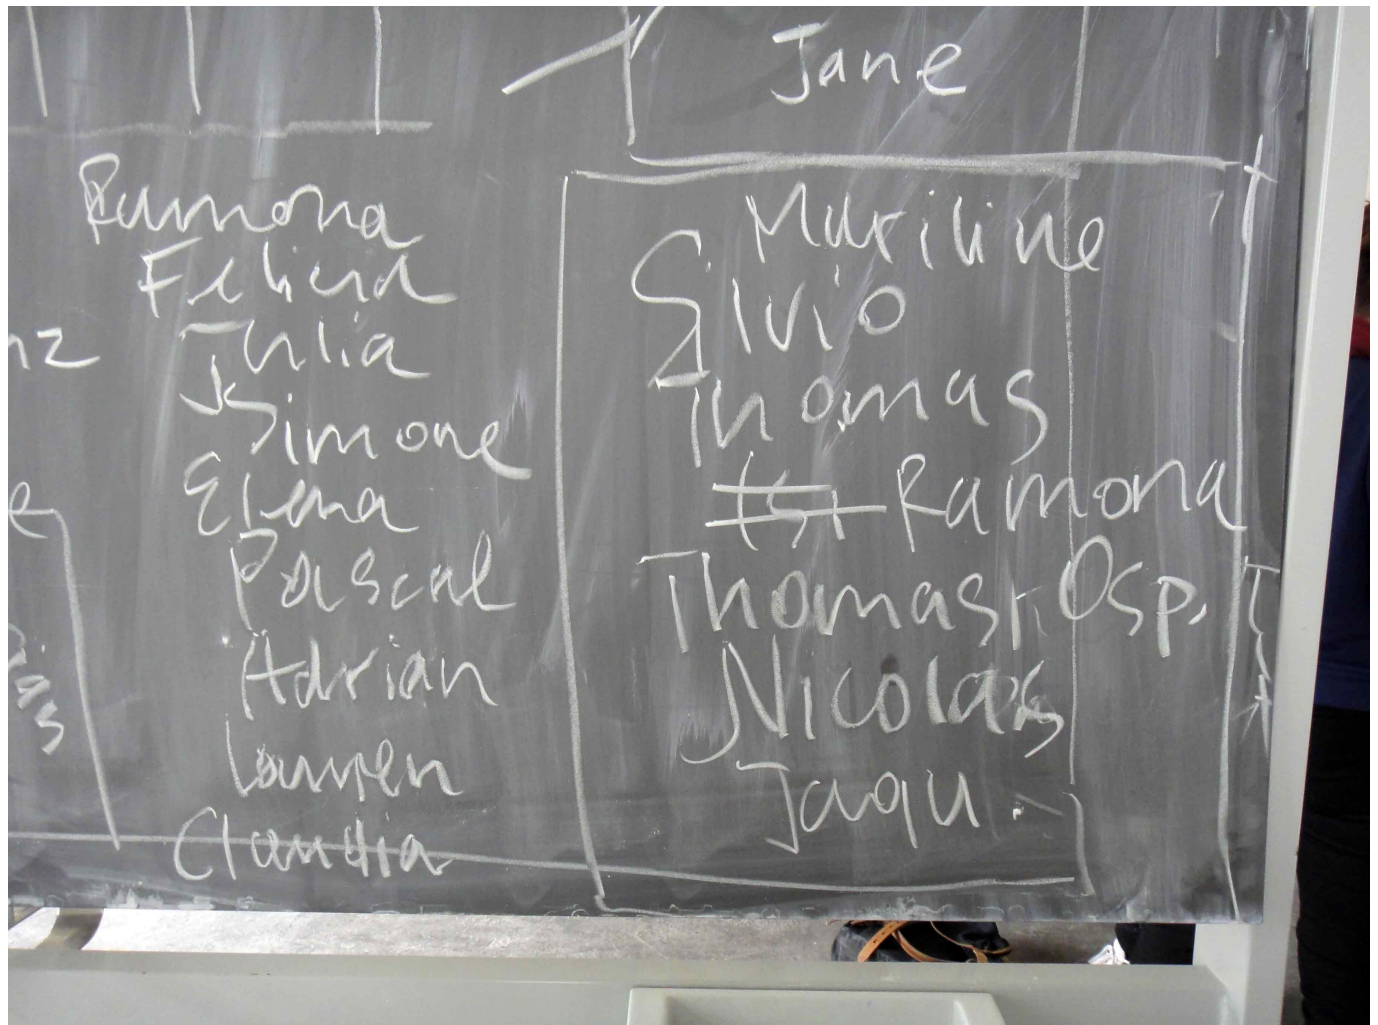 Jane
Ramona
Felicia
Julia
Simone
Elena
Pascal
Adrian
Lauren
Claudia
Mariline
Silvio
Thomas
Ramona
Thomas, Osp.
Nicolas
Jaqu.